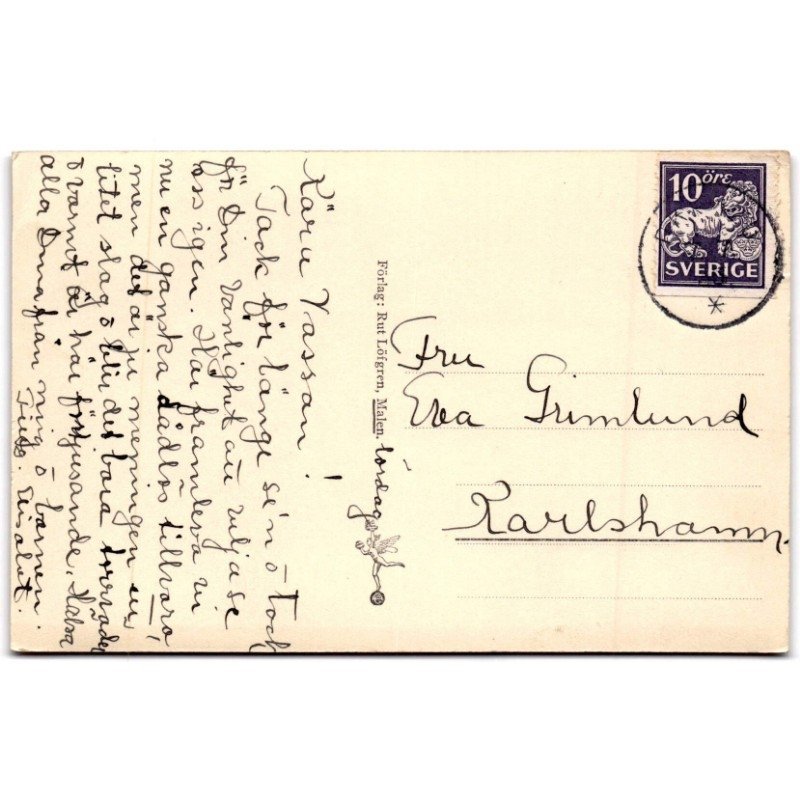 Kära Vassan!
Tack för länge se'n o Tack
för Din vänlighet att vilja se
oss igen. Här framleva vi
nu en ganska dådlös tillvaro
men det är ju meningen en
litet slag o blir det bara torrväder
o varmt är här förtjusande. Hälsa
alla Dina från mig o barnen.
Förlag: Rut Löfgren, Malen.
lördag
10 ÖRE
SVERIGE
Fru
Eva Grimlund
Karlshamn.